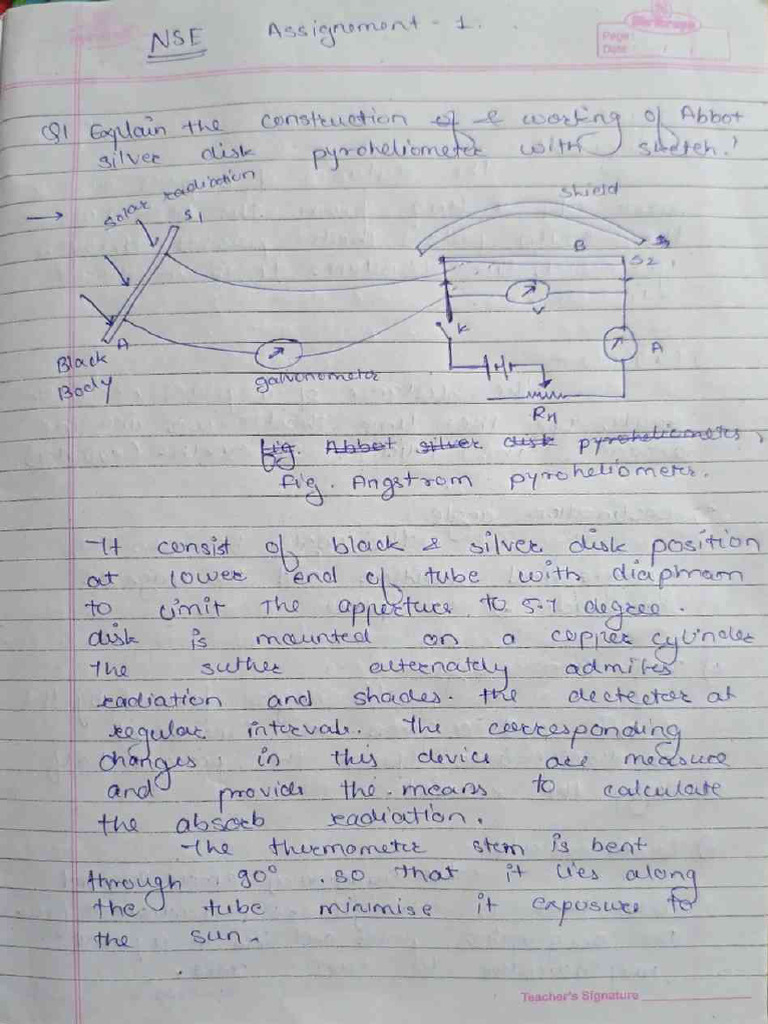 NSE Assignement - 1.
Page:
Date: / /
Q1 Explain the construction of & working of Abbot
silver disk pyroheliometer with sketch.'
solar radiation
S1
shield
B
S2
V
K
A
A
Black
Body
galvonometer
RH
fig. Abbot silver disk pyroheliometer,
fig. Angstrom pyroheliometer.
It consist of black & silver disk position
at lower end of tube with diaphram
to limit the apperture to 5.7 degree.
disk is mounted on a copper cylinder
the suther alternately admites
radiation and shades. the dectector at
regular intervals. The corresponding
changes in this device are measure
and provides the means to calculate
the absorb radiation.
The thermometer stem is bent
through 90° .so that it lies along
the tube minimise it exposures to
the sun.
Teacher's Signature